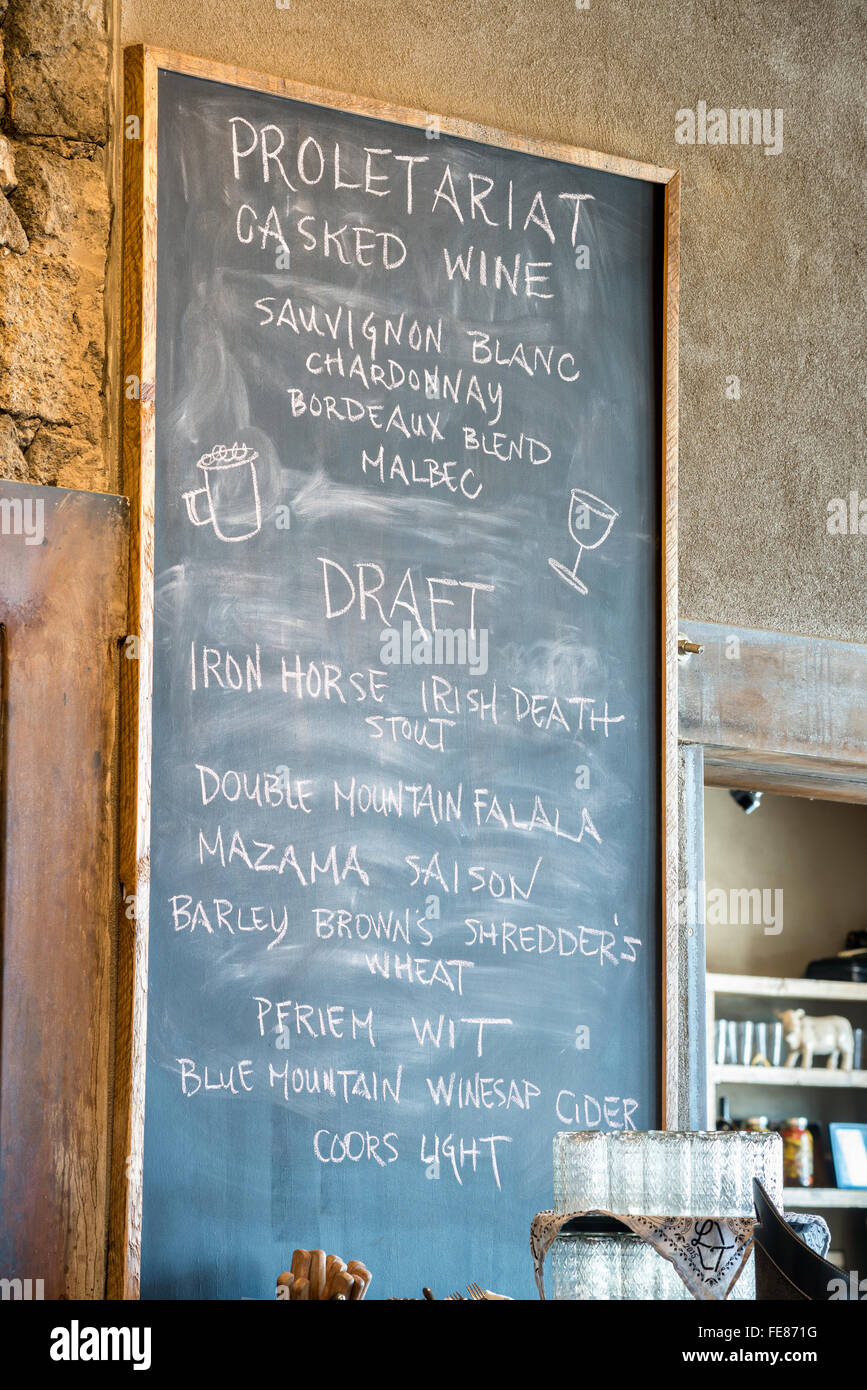 PROLETARIAT
CASKED WINE
SAUVIGNON BLANC
CHARDONNAY
BORDEAUX BLEND
MALBEC
DRAFT
IRON HORSE IRISH DEATH
STOUT
DOUBLE MOUNTAIN FALALA
MAZAMA SAISON
BARLEY BROWN'S SHREDDER'S
WHEAT
PFRIEM WIT
BLUE MOUNTAIN WINESAP CIDER
COORS LIGHT
alamy
Image ID: FE871G
www.alamy.com